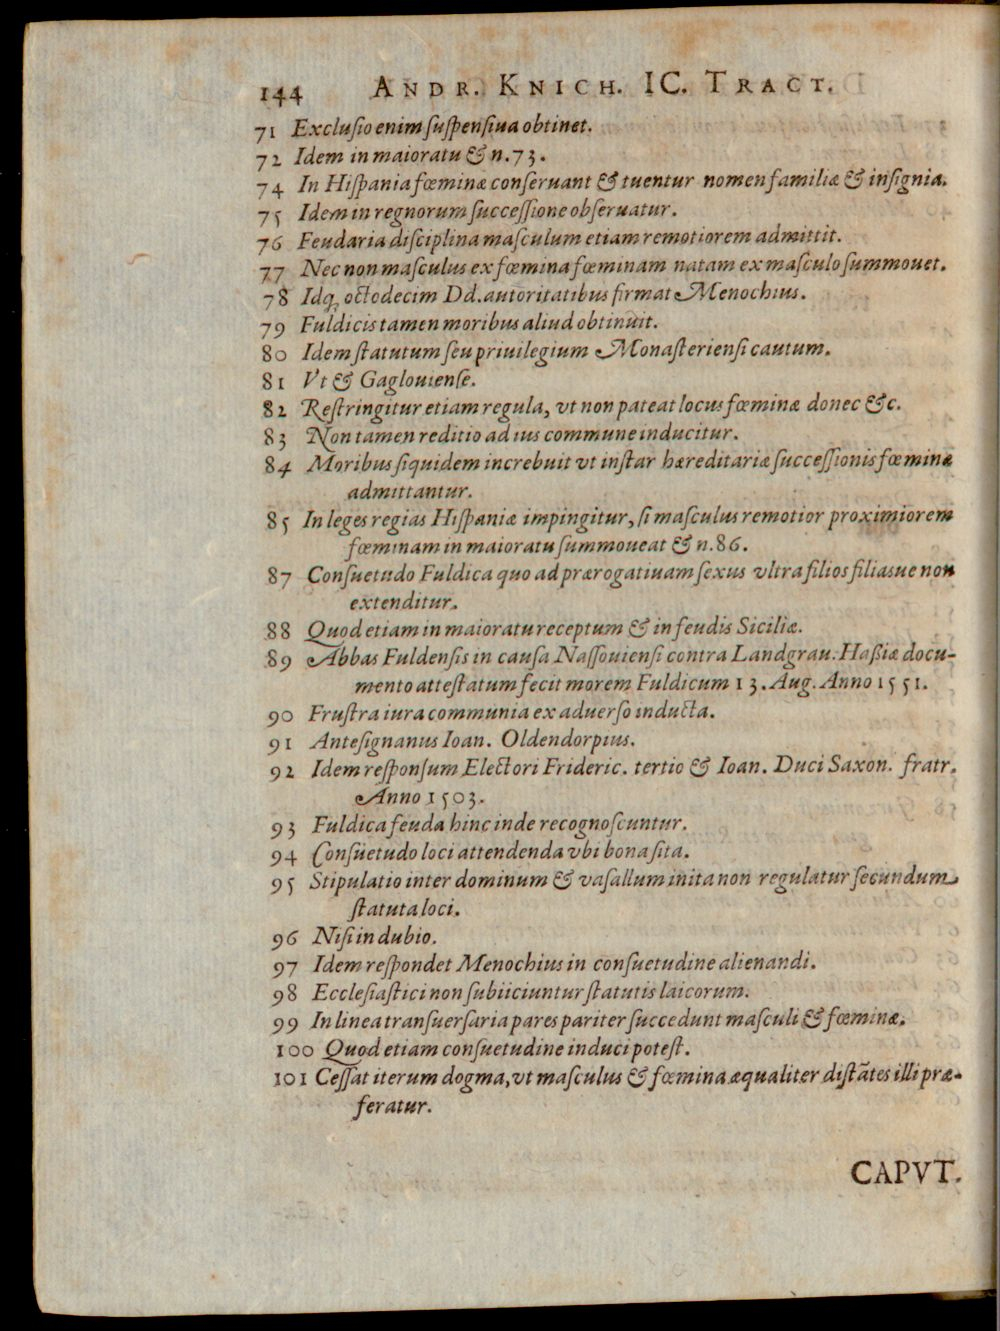 144 ANDR. KNICH. IC. TRACT.
71 Exclusio enim suspensiua obtinet.
72 Idem in maioratu & n.73.
74 In Hispania fœminæ conseruant & tuentur nomen familiæ & insignia.
75 Idem in regnorum successione obseruatur.
76 Feudaria disciplina masculum etiam remotiorem admittit.
77 Nec non masculus ex fœmina fœminam natam ex masculo summouet.
78 Idq; octodecim Dd. autoritatibus firmat Menochius.
79 Fuldicis tamen moribus aliud obtinuit.
80 Idem statutum seu priuilegium Monasteriensi cautum.
81 Vt & Gaglouiense.
82 Restringitur etiam regula, vt non pateat locus fœminæ donec &c.
83 Non tamen reditio ad ius commune inducitur.
84 Moribus siquidem increbuit vt instar hæreditariæ successionis fœminæ
admittantur.
85 In leges regias Hispaniæ impingitur, si masculus remotior proximiorem
fœminam in maioratu summoueat & n.86.
87 Consuetudo Fuldica quo ad prærogatiuam sexus vltra filios filiasue non
extenditur.
88 Quod etiam in maioratu receptum & in feudis Siciliæ.
89 Abbas Fuldensis in causa Nassouiensi contra Landgrau. Haßiæ docu-
mento attestatum fecit morem Fuldicum 13. Aug. Anno 1551.
90 Frustra iura communia ex aduerso inducta.
91 Antesignanus Ioan. Oldendorpius.
92 Idem responsum Electori Frideric. tertio & Ioan. Duci Saxon. fratr.
Anno 1503.
93 Fuldica feuda hinc inde recognoscuntur.
94 Consuetudo loci attendenda vbi bona sita.
95 Stipulatio inter dominum & vasallum inita non regulatur secundum
statuta loci.
96 Nisi in dubio.
97 Idem respondet Menochius in consuetudine alienandi.
98 Ecclesiastici non subiiciuntur statutis laicorum.
99 In linea transuersaria pares pariter succedunt masculi & fœminæ.
100 Quod etiam consuetudine induci potest.
101 Cessat iterum dogma, vt masculus & fœmina æqualiter distātes illi præ-
feratur.
CAPVT.